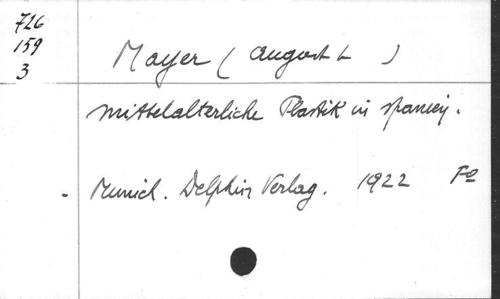 726
159
3
Mayer (August L )
Mittelalterliche Plastik in Spanien.
- Munich. Delphin Verlag. 1922 Fº